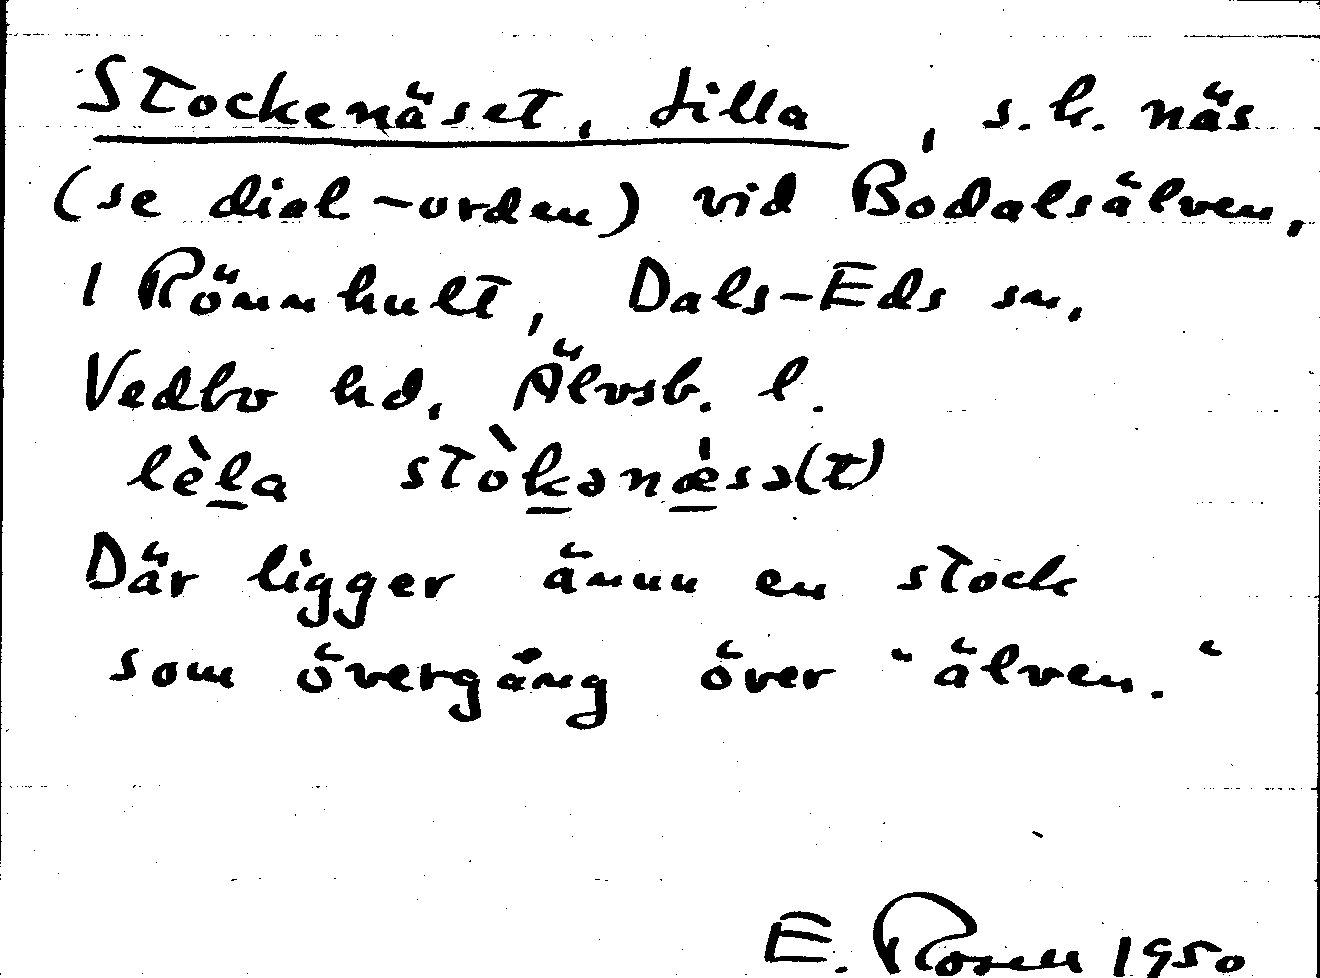 Stockenäset, Lilla, s.k. näs
(se dial-orden) vid Bodalsälven,
i Rönnhult, Dals-Eds sn,
Vedbo hd, Älvsb. l.
lèla stòkənæsə(t)
Där ligger ännu en stock
som övergång över "älven."
E. Rosell 1950